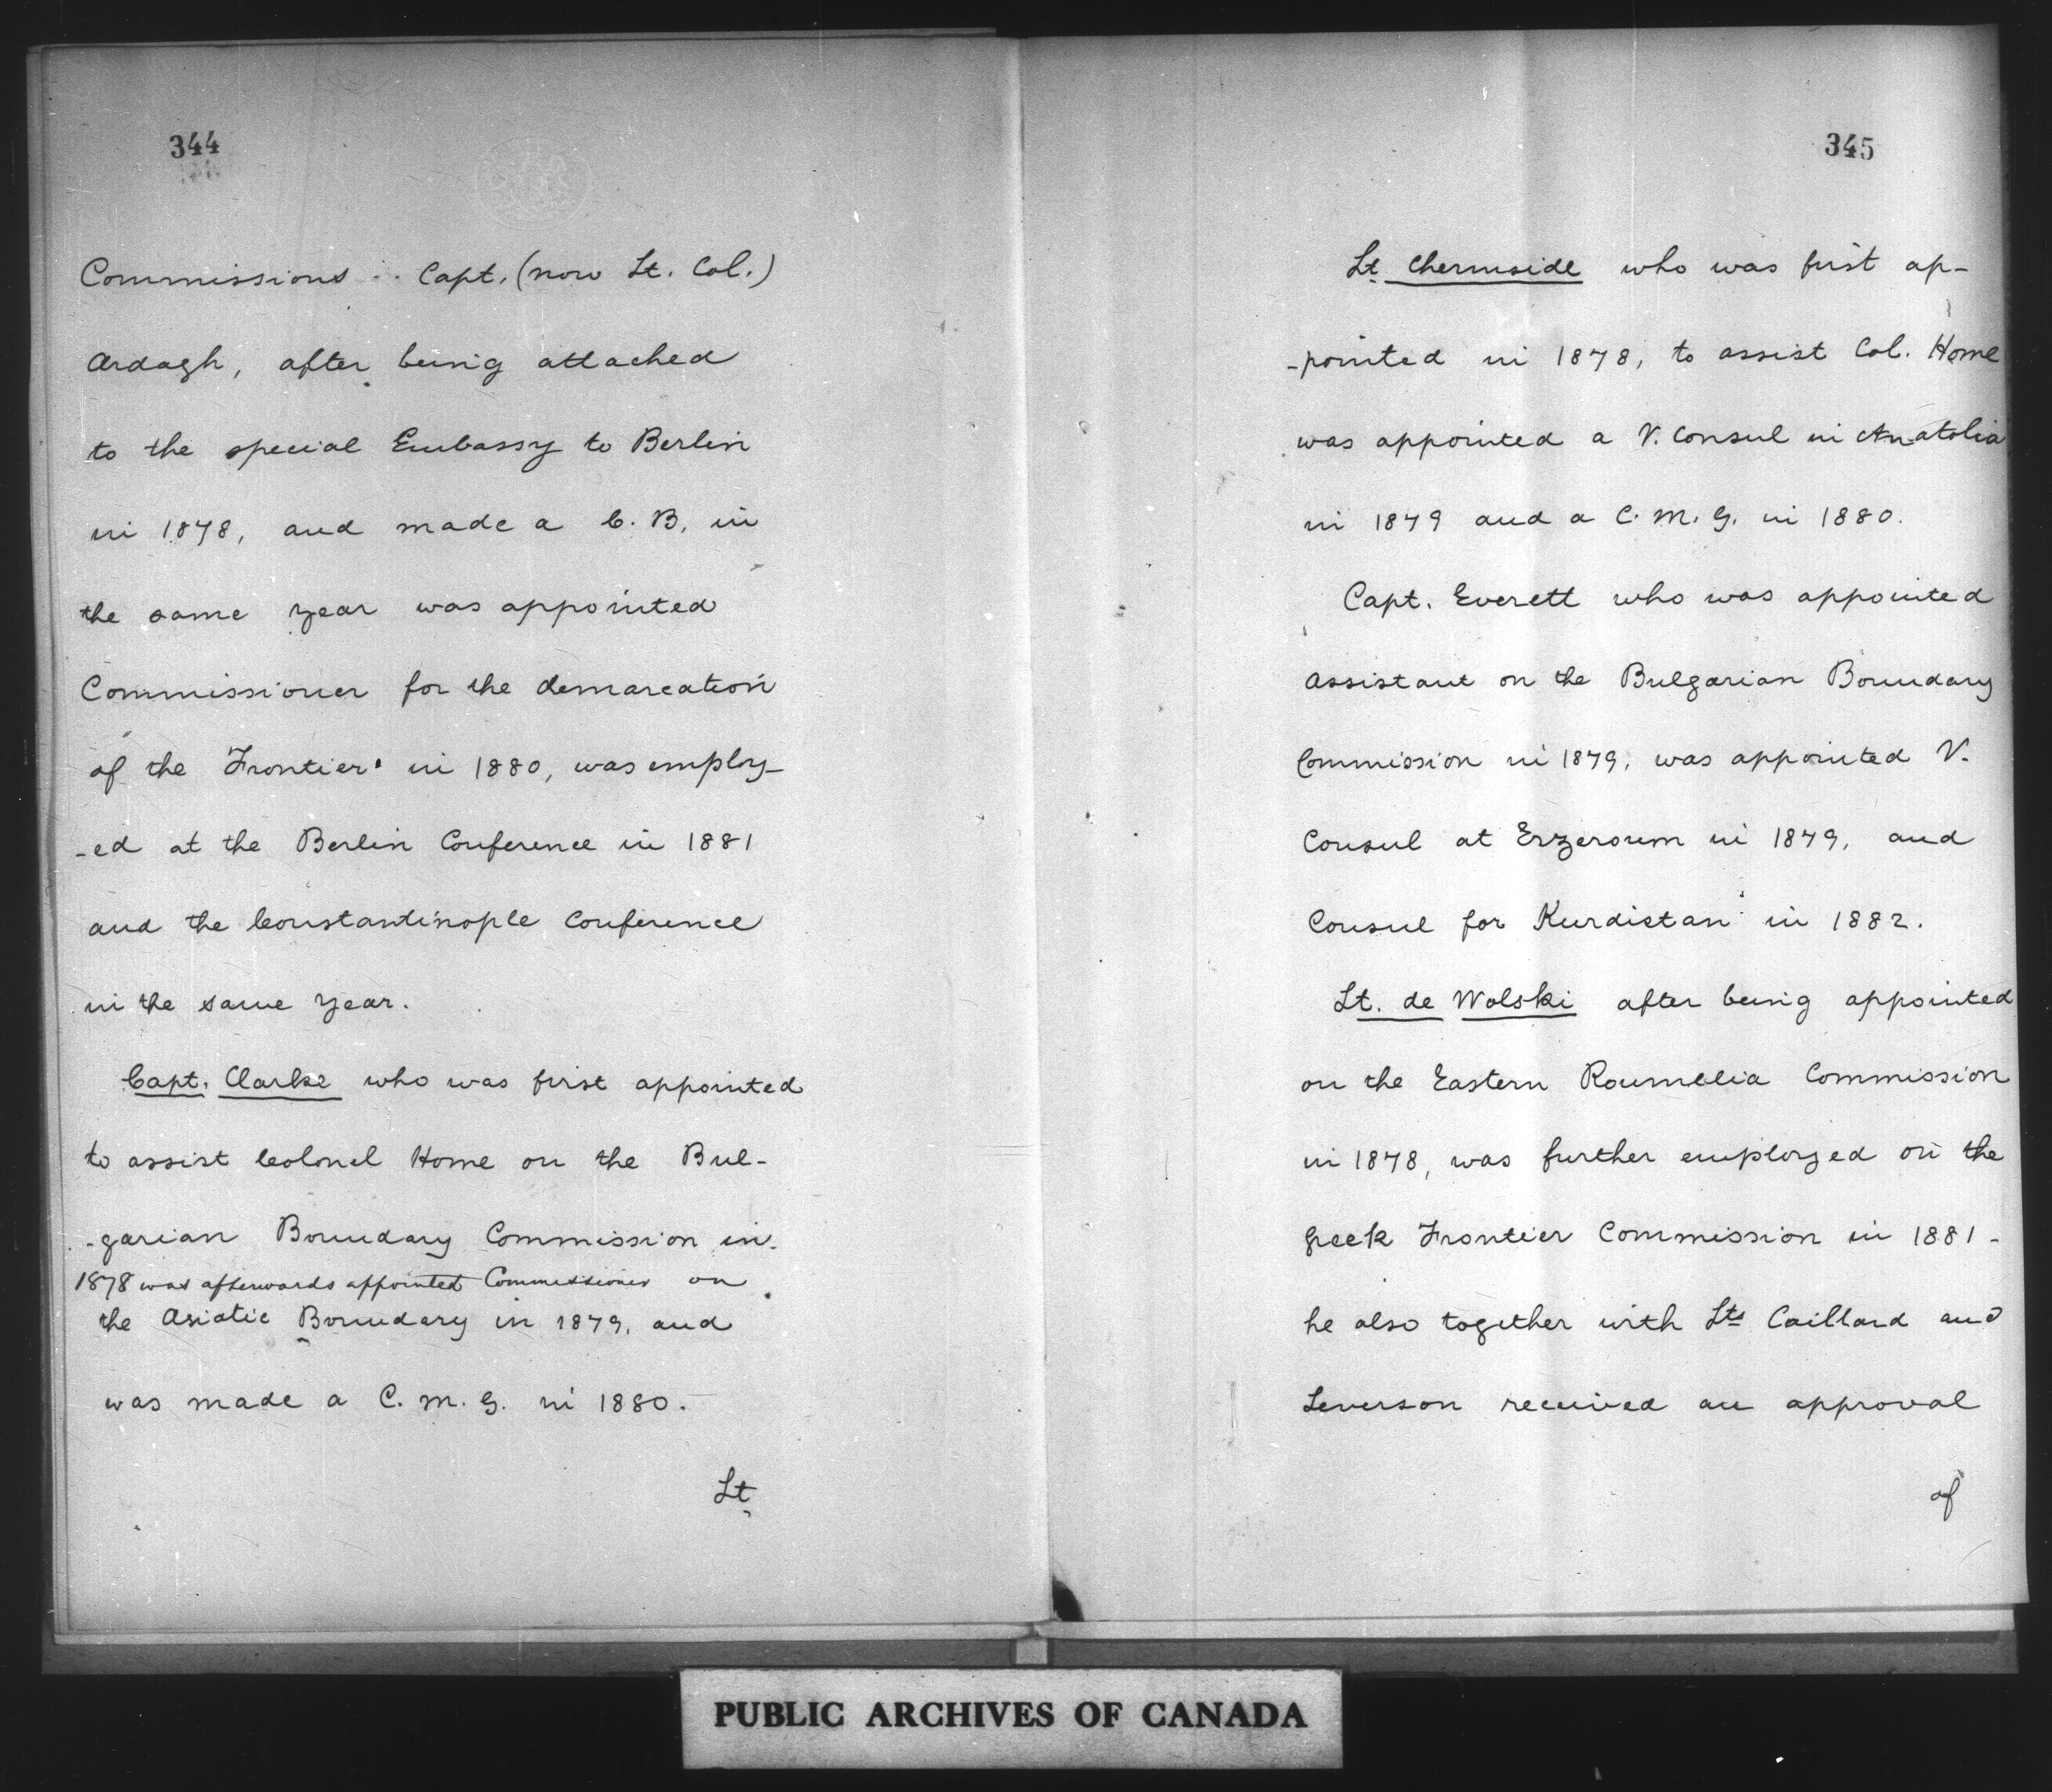 344
Commissions . . Capt. (now Lt. Col.)
Ardagh, after being attached
to the special Embassy to Berlin
in 1878, and made a C. B. in
the same year was appointed
Commissioner for the demarcation
of the Frontier in 1880, was employ-
-ed at the Berlin Conference in 1881
and the Constantinople Conference
in the same year.
Capt. Clarke who was first appointed
to assist Colonel Home on the Bul-
-garian Boundary Commission in
1878 was afterwards appointed Commissioner on
the Asiatic Boundary in 1879, and
was made a C. M. G. in 1880.
Lt
345
Lt Chermside who was first ap-
-pointed in 1878, to assist Col. Home
was appointed a V. Consul in Anatolia
in 1879 and a C. M. G. in 1880.
Capt. Everett who was appointed
Assistant on the Bulgarian Boundary
Commission in 1879, was appointed V.
Consul at Erzeroum in 1879, and
Consul for Kurdistan in 1882.
Lt. de Wolski after being appointed
on the Eastern Roumelia Commission
in 1878, was further employed on the
Greek Frontier Commission in 1881 -
he also together with Lts Caillard and
Leverson received an approval
of
PUBLIC ARCHIVES OF CANADA